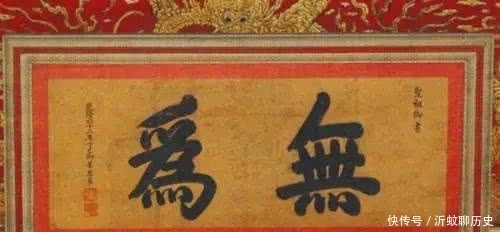 聖祖御書
無爲
快传号／沂蚊聊历史